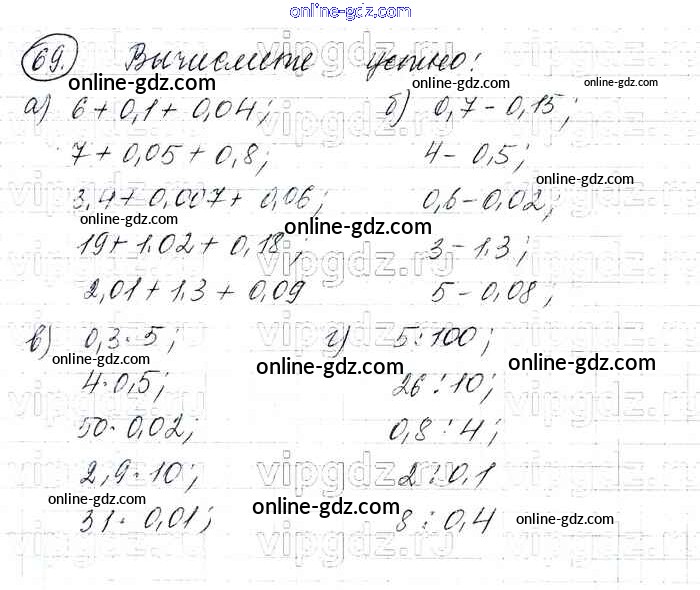 online-gdz.com
69. Вычислите устно:
online-gdz.com online-gdz.com
а) 6 + 0,1 + 0,04; б) 0,7 - 0,15;
vipgdz.ru
7 + 0,05 + 0,8; 4 - 0,5;
online-gdz.com
3,4 + 0,007 + 0,06; 0,6 - 0,02;
online-gdz.com online-gdz.com
19 + 1,02 + 0,18; 3 - 1,3;
vipgdz.ru
2,01 + 1,3 + 0,09 5 - 0,08;
в) 0,3 · 5; г) 5 : 100;
online-gdz.com online-gdz.com online-gdz.com
4 · 0,5; 26 : 10;
vipgdz.ru
50 · 0,02; 0,8 : 4;
2,9 · 10; 2 : 0,1
vipgdz.ru
online-gdz.com online-gdz.com online-gdz.com
31 · 0,01; 8 : 0,4
vipgdz.ru